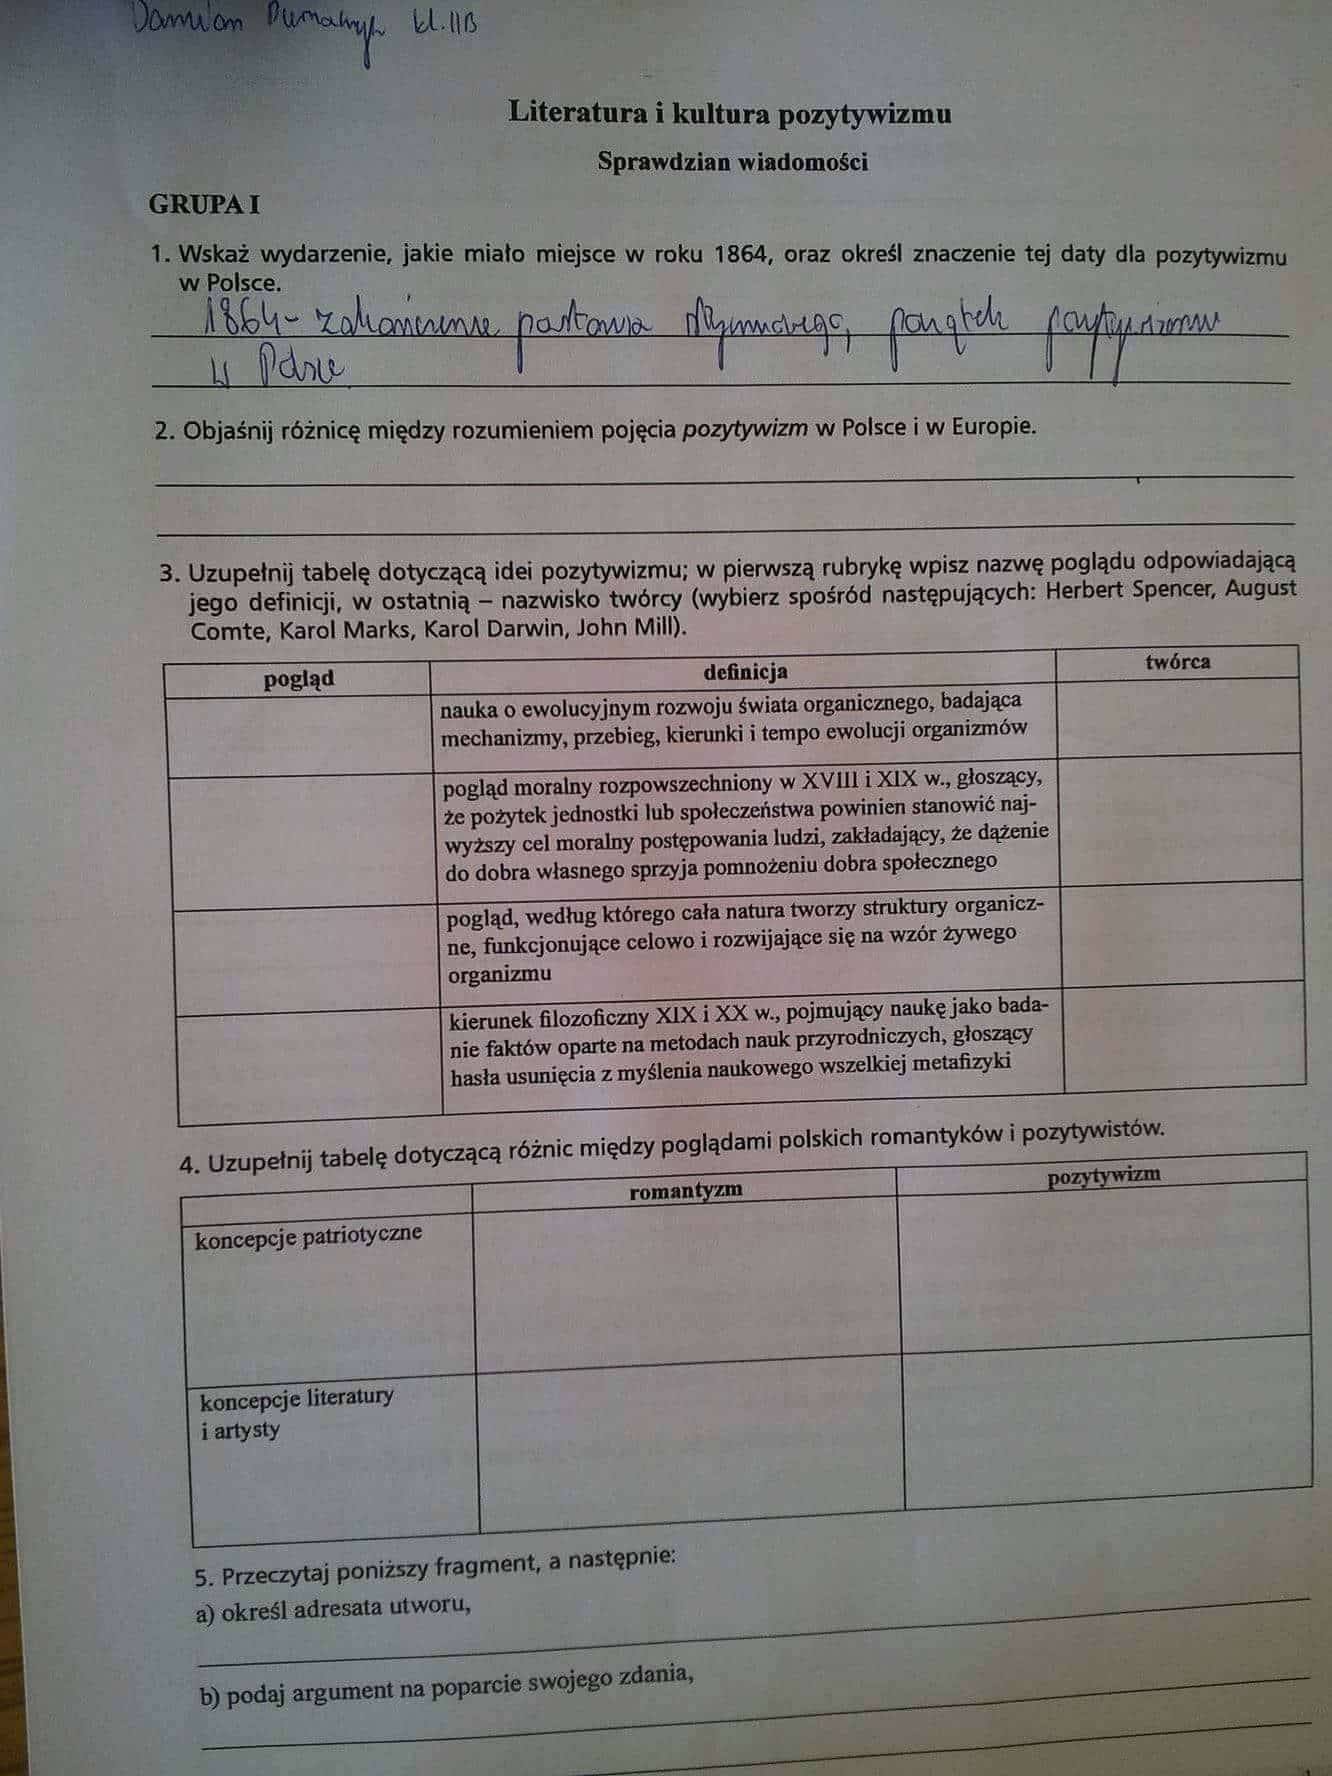 Damian kl. IIB
Literatura i kultura pozytywizmu
Sprawdzian wiadomości
GRUPA I
1. Wskaż wydarzenie, jakie miało miejsce w roku 1864, oraz określ znaczenie tej daty dla pozytywizmu
w Polsce.
1864 - zakończenie powstania styczniowego, początek pozytywizmu
w Polsce
2. Objaśnij różnicę między rozumieniem pojęcia pozytywizm w Polsce i w Europie.
3. Uzupełnij tabelę dotyczącą idei pozytywizmu; w pierwszą rubrykę wpisz nazwę poglądu odpowiadającą
jego definicji, w ostatnią – nazwisko twórcy (wybierz spośród następujących: Herbert Spencer, August
Comte, Karol Marks, Karol Darwin, John Mill).
pogląd definicja twórca
nauka o ewolucyjnym rozwoju świata organicznego, badająca
mechanizmy, przebieg, kierunki i tempo ewolucji organizmów
pogląd moralny rozpowszechniony w XVIII i XIX w., głoszący,
że pożytek jednostki lub społeczeństwa powinien stanowić naj-
wyższy cel moralny postępowania ludzi, zakładający, że dążenie
do dobra własnego sprzyja pomnożeniu dobra społecznego
pogląd, według którego cała natura tworzy struktury organicz-
ne, funkcjonujące celowo i rozwijające się na wzór żywego
organizmu
kierunek filozoficzny XIX i XX w., pojmujący naukę jako bada-
nie faktów oparte na metodach nauk przyrodniczych, głoszący
hasła usunięcia z myślenia naukowego wszelkiej metafizyki
4. Uzupełnij tabelę dotyczącą różnic między poglądami polskich romantyków i pozytywistów.
romantyzm pozytywizm
koncepcje patriotyczne
koncepcje literatury
i artysty
5. Przeczytaj poniższy fragment, a następnie:
a) określ adresata utworu,
b) podaj argument na poparcie swojego zdania,